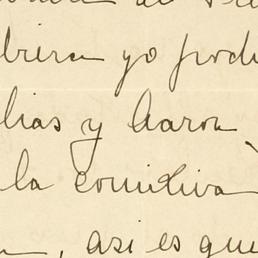 briera yo pod
lias y Aaron
la comitiva
, asi es que